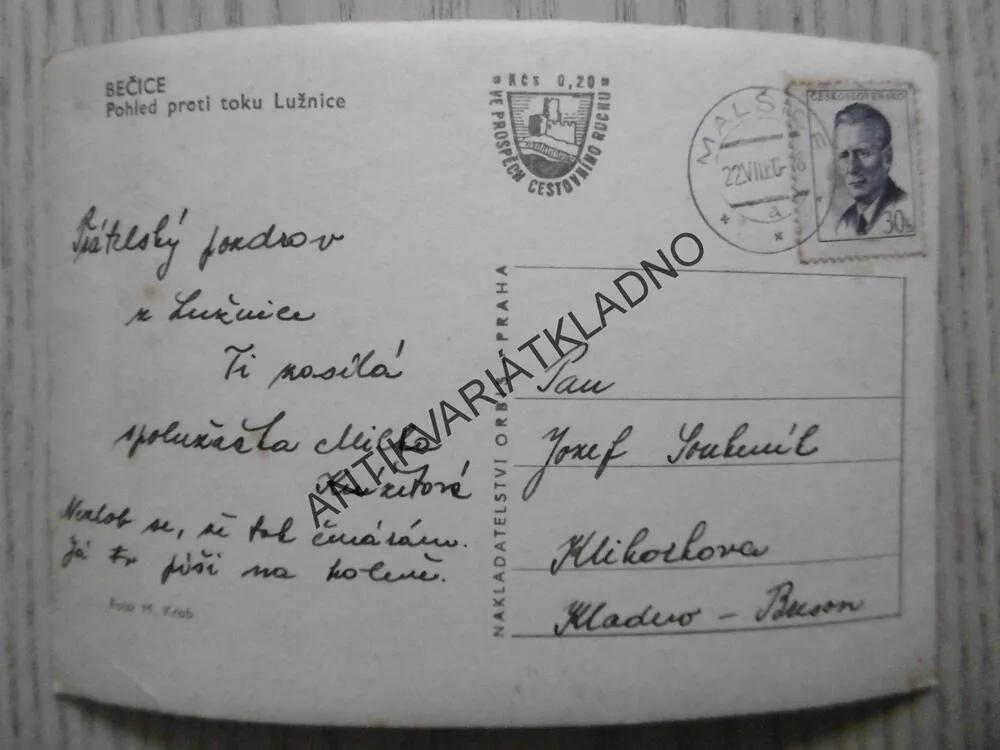 BEČICE
Pohled proti toku Lužnice
Kčs 0,20
VE PROSPĚCH CESTOVNÍHO RUCHU
MALŠICE
22.VII.60-8
a
ČESKOSLOVENSKO
30h
Přátelský pozdrav
z Lužnice
Ti posílá
spolužačka
Nezlob se, že tak čmárám.
Já to píši na koleně.
Foto M. Krob
NAKLADATELSTVÍ ORBIS PRAHA
Pan
Josef
Kladno -
ANTIKVARIÁTKLADNO